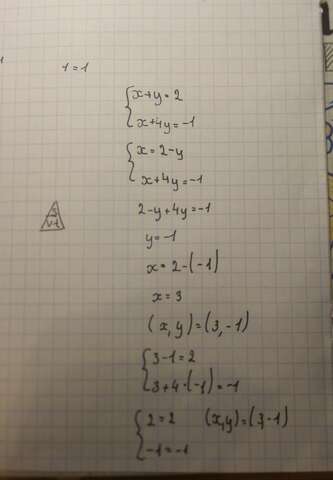 1=1
x+y=2
x+4y=-1
x=2-y
x+4y=-1
2-y+4y=-1
y=-1
x=2-(-1)
x=3
(x,y)=(3,-1)
3-1=2
3+4·(-1)=-1
2=2 (x,y)=(3,-1)
-1=-1